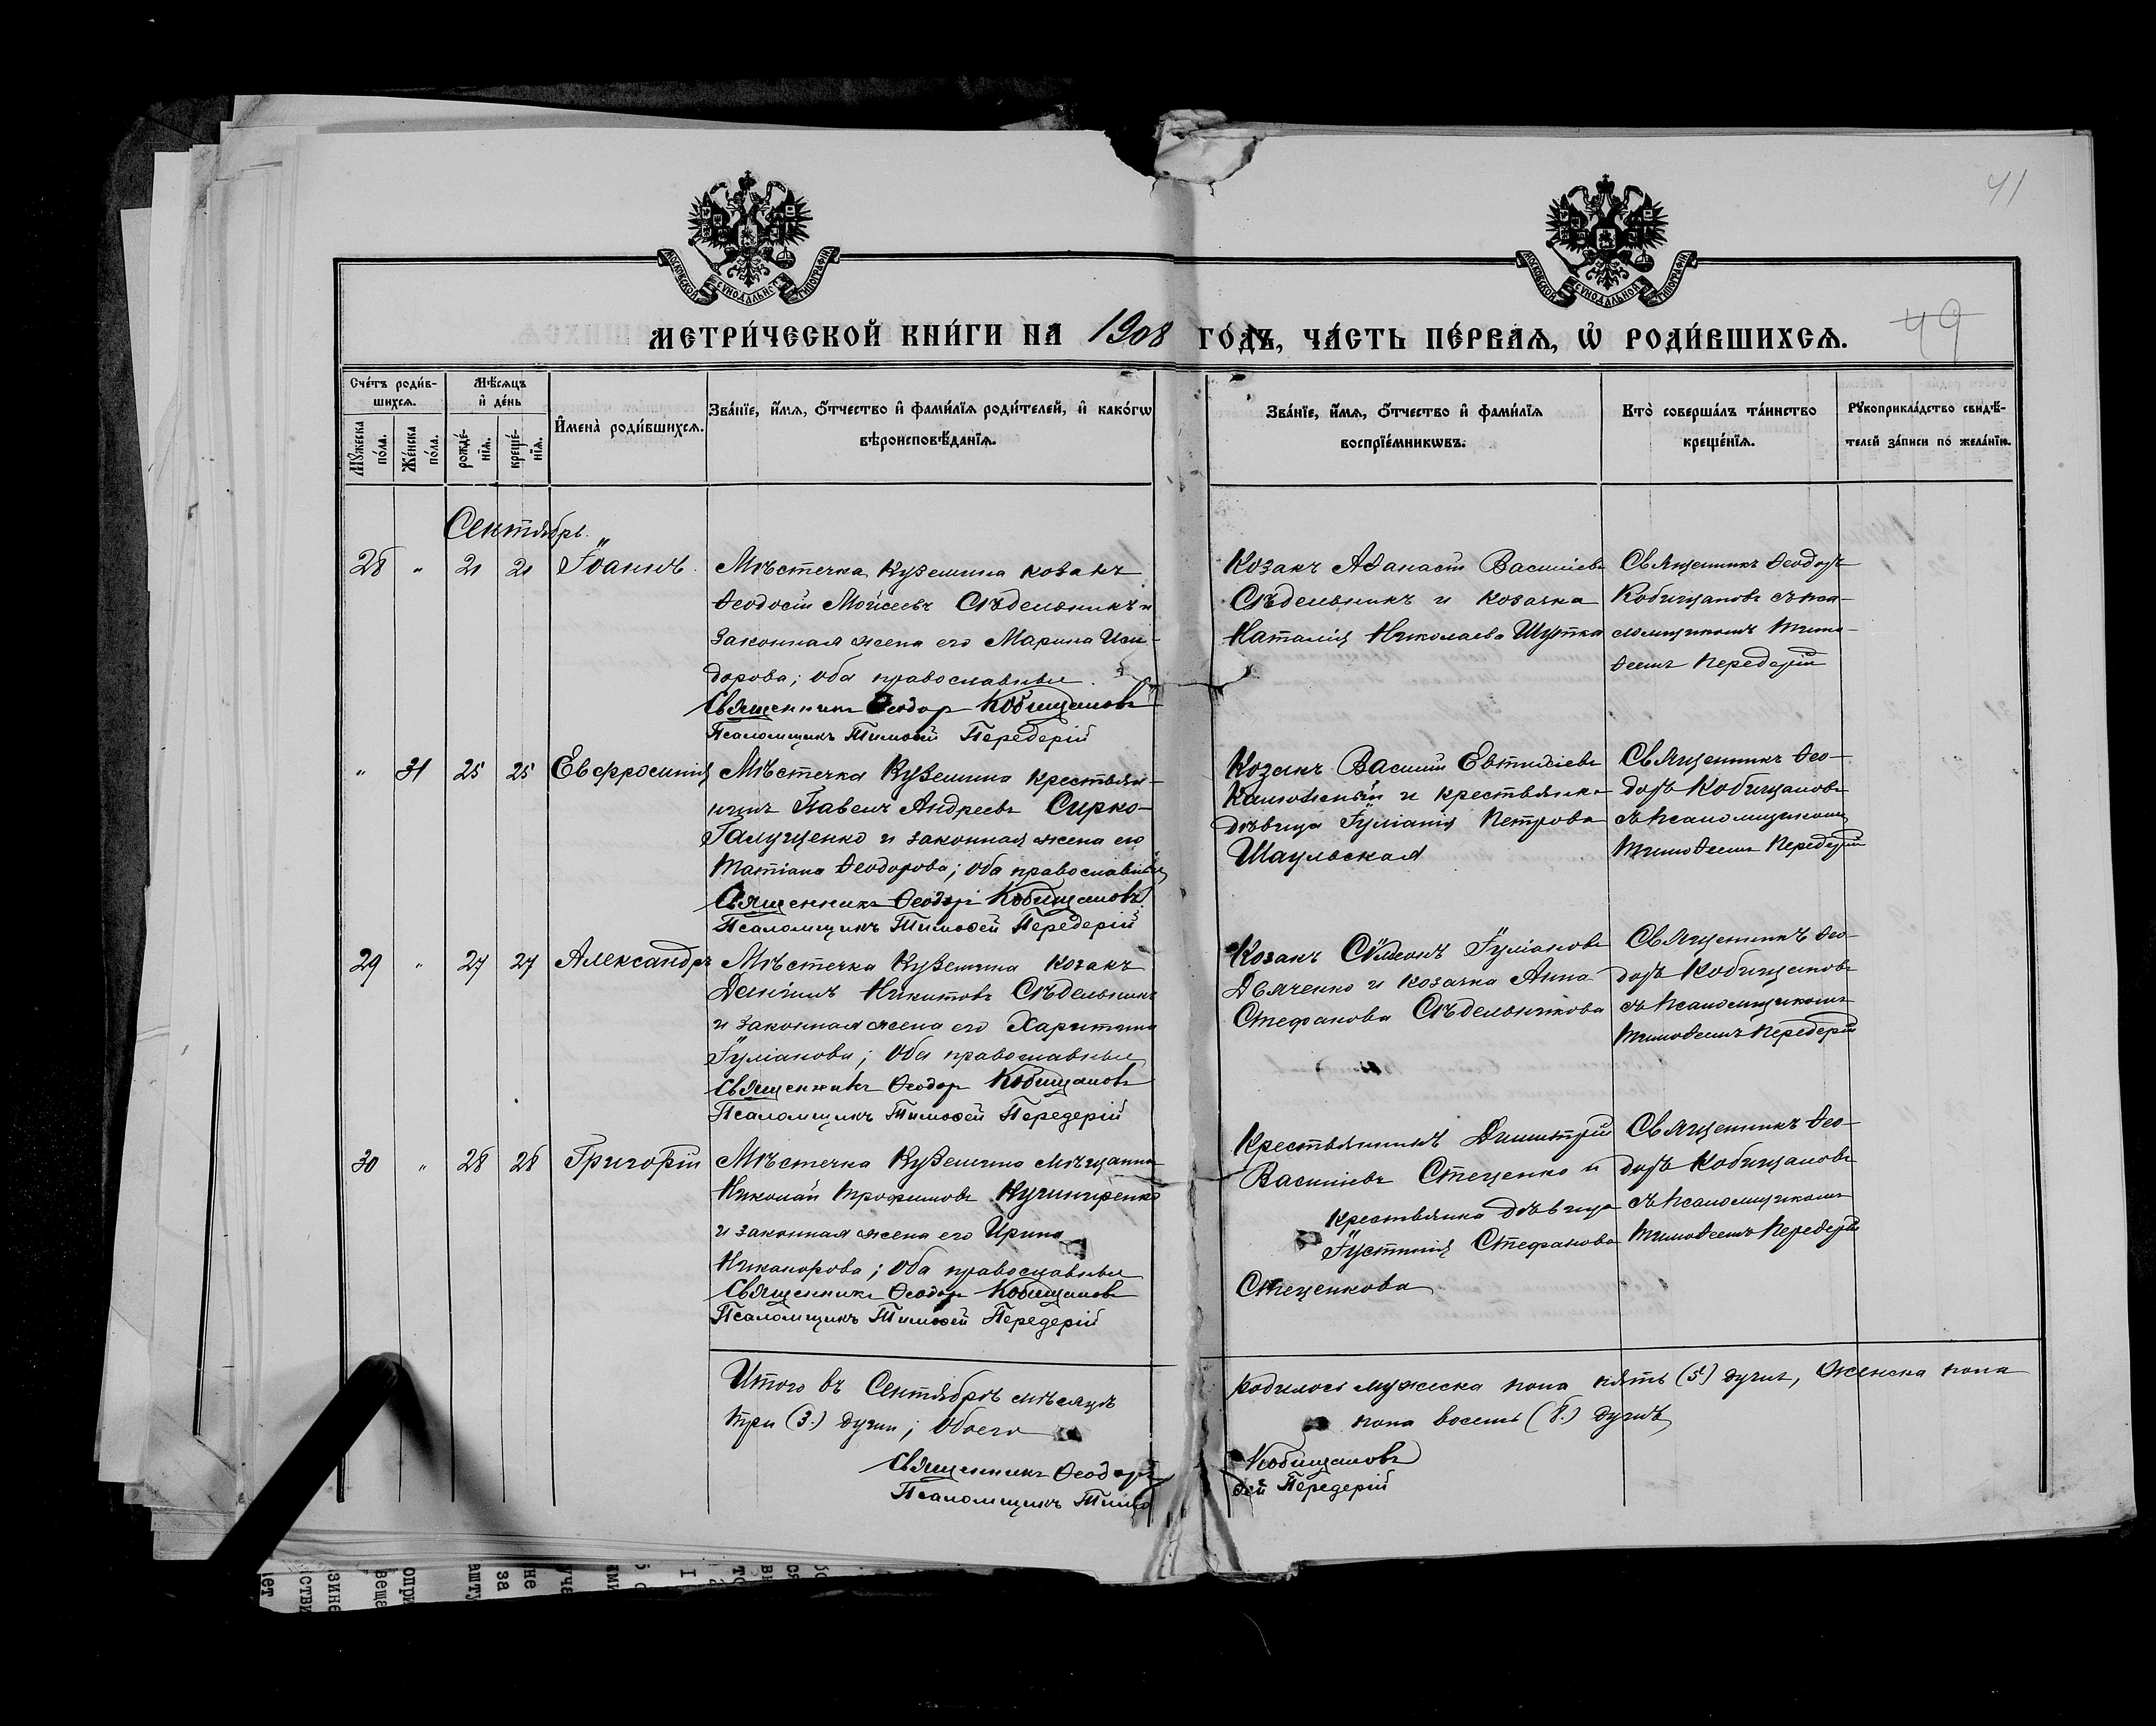 41
МОСКОВСКОЙ СѴНОДАЛЬНОЙ ТИПОГРАФІИ
МОСКОВСКОЙ СѴНОДАЛЬНОЙ ТИПОГРАФІИ
МЕТРИ́ЧЕСКОЙ КНИ́ГИ НА 1908 ГО́ДЪ, ЧА́СТЬ ПЕ́РВАѦ, Ѽ РОДИ́ВШИХСѦ.
49
Сче́тъ роди́в-
шихсѧ.
Мꙋ́жеска по́ла.
Же́нска по́ла.
Мѣ́сѧцъ
и҆ де́нь
рожде́-
нїѧ.
креще́-
нїѧ.
И҆мена̀ роди́вшихсѧ.
Зва́нїе, и҆́мѧ, ѻ҆́тчество и҆ фами́лїѧ роди́телей, и҆ како́гѡ
вѣроисповѣ́данїѧ.
Зва́нїе, и҆́мѧ, ѻ҆́тчество и҆ фами́лїѧ
воспрїе́мникѡвъ.
Кто̀ соверша́лъ та́инство
креще́нїѧ.
Рꙋкоприкла́дство свидѣ́-
телей за́писи по жела́нїю.
Сентябрь.
28 " 21 21 Іоаннъ.
Мѣстечка Куземина козакъ
Ѳеодосій Моисеевъ Сѣдельникъ и
законная жена его Марина Иси-
дорова; оба православные.
Священникъ Ѳеодоръ Кобищановъ
Псаломщикъ Тимоѳей Передерій
Козакъ Аѳанасій Василіевъ
Сѣдельникъ и козачка
Наталія Николаева Шутка
Священникъ Ѳеодоръ
Кобищановъ съ пса-
ломщикомъ Тимо-
ѳеемъ Передерій
" 31 25 25 Евфросинія
Мѣстечка Куземина крестьян-
инъ Павелъ Андреевъ Сирко-
Галущенко и законная жена его
Татіана Ѳеодорова; оба православные
Священникъ Ѳеодоръ Кобищановъ
Псаломщикъ Тимоѳей Передерій
Козакъ Василій Евтихіевъ
Калюжный и крестьянка
дѣвица Іуліанія Петрова
Шаульская
Священникъ Ѳео-
доръ Кобищановъ
съ псаломщикомъ
Тимоѳеемъ Передерій
29 " 27 27 Александръ
Мѣстечка Куземина козакъ
Даніилъ Никитовъ Сѣдельникъ
и законная жена его Харитина
Іуліанова; оба православные
Священникъ Ѳеодоръ Кобищановъ
Псаломщикъ Тимоѳей Передерій
Козакъ Сѵмеонъ Іуліановъ
Дьяченко и козачка Анна
Стефанова Сѣдельникова
Священникъ Ѳео-
доръ Кобищановъ
съ псаломщикомъ
Тимоѳеемъ Передерій
30 " 28 28 Григорій
Мѣстечка Куземина мѣщанинъ
Николай Трофимовъ Кучиренко
и законная жена его Ирина
Никанорова; оба православные
Священникъ Ѳеодоръ Кобищановъ
Псаломщикъ Тимоѳей Передерій
Крестьянинъ Димитрій
Василіевъ Стеценко и
крестьянка дѣвица
Іустинія Стефанова
Стеценкова
Священникъ Ѳео-
доръ Кобищановъ
съ псаломщикомъ
Тимоѳеемъ Передерій
Итого въ Сентябрѣ мѣсяцѣ родилось мужеска пола пять (5) душъ, женска пола
три (3.) души; обоего пола восемь (8.) душъ
Священникъ Ѳеодоръ Кобищановъ
Псаломщикъ Тимоѳей Передерій